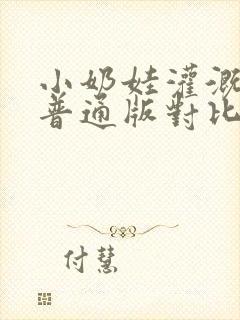 小奶娃灌溉
普通版對比
付慧